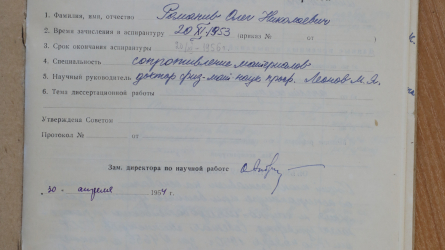 1. Фамилия, имя, отчество Романив Олег Николаевич
2. Время зачисления в аспирантуру 20 XI 1953 (приказ № от )
3. Срок окончания аспирантуры
4. Специальность сопротивление материалов
5. Научный руководитель доктор физ-мат наук проф. Леонов М. Я.
6. Тема диссертационной работы
Утверждена Советом
Протокол № от
Зам. директора по научной работе
„30“ апреля 1954 г.